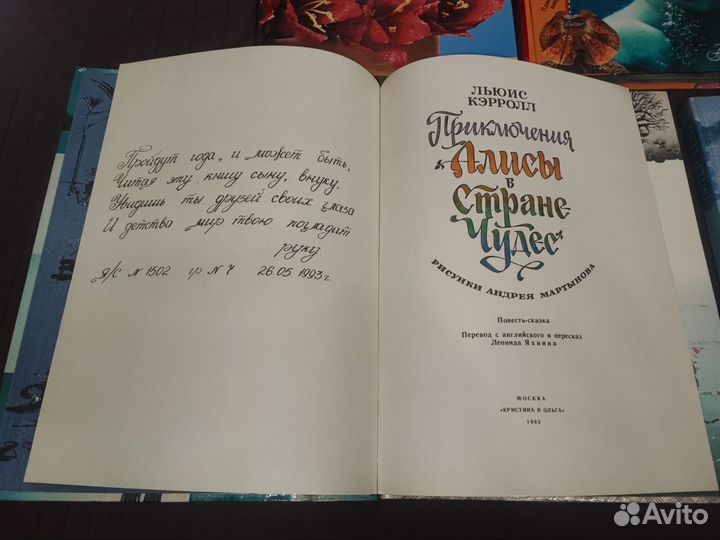 Пройдут года, и может быть,
Читая эту книгу сыну, внуку,
Увидишь ты друзей своих глаза
И детства мир твою погладит
руку
Я/С N 1502 гр N 4 26.05 1993г.
ЛЬЮИС
КЭРРОЛЛ
Приключения
Алисы
в
Стране
Чудес
РИСУНКИ АНДРЕЯ МАРТЫНОВА
Повесть-сказка
Перевод с английского и пересказ
Леонида Яхнина
МОСКВА
«КРИСТИНА И ОЛЬГА»
1993
Avito